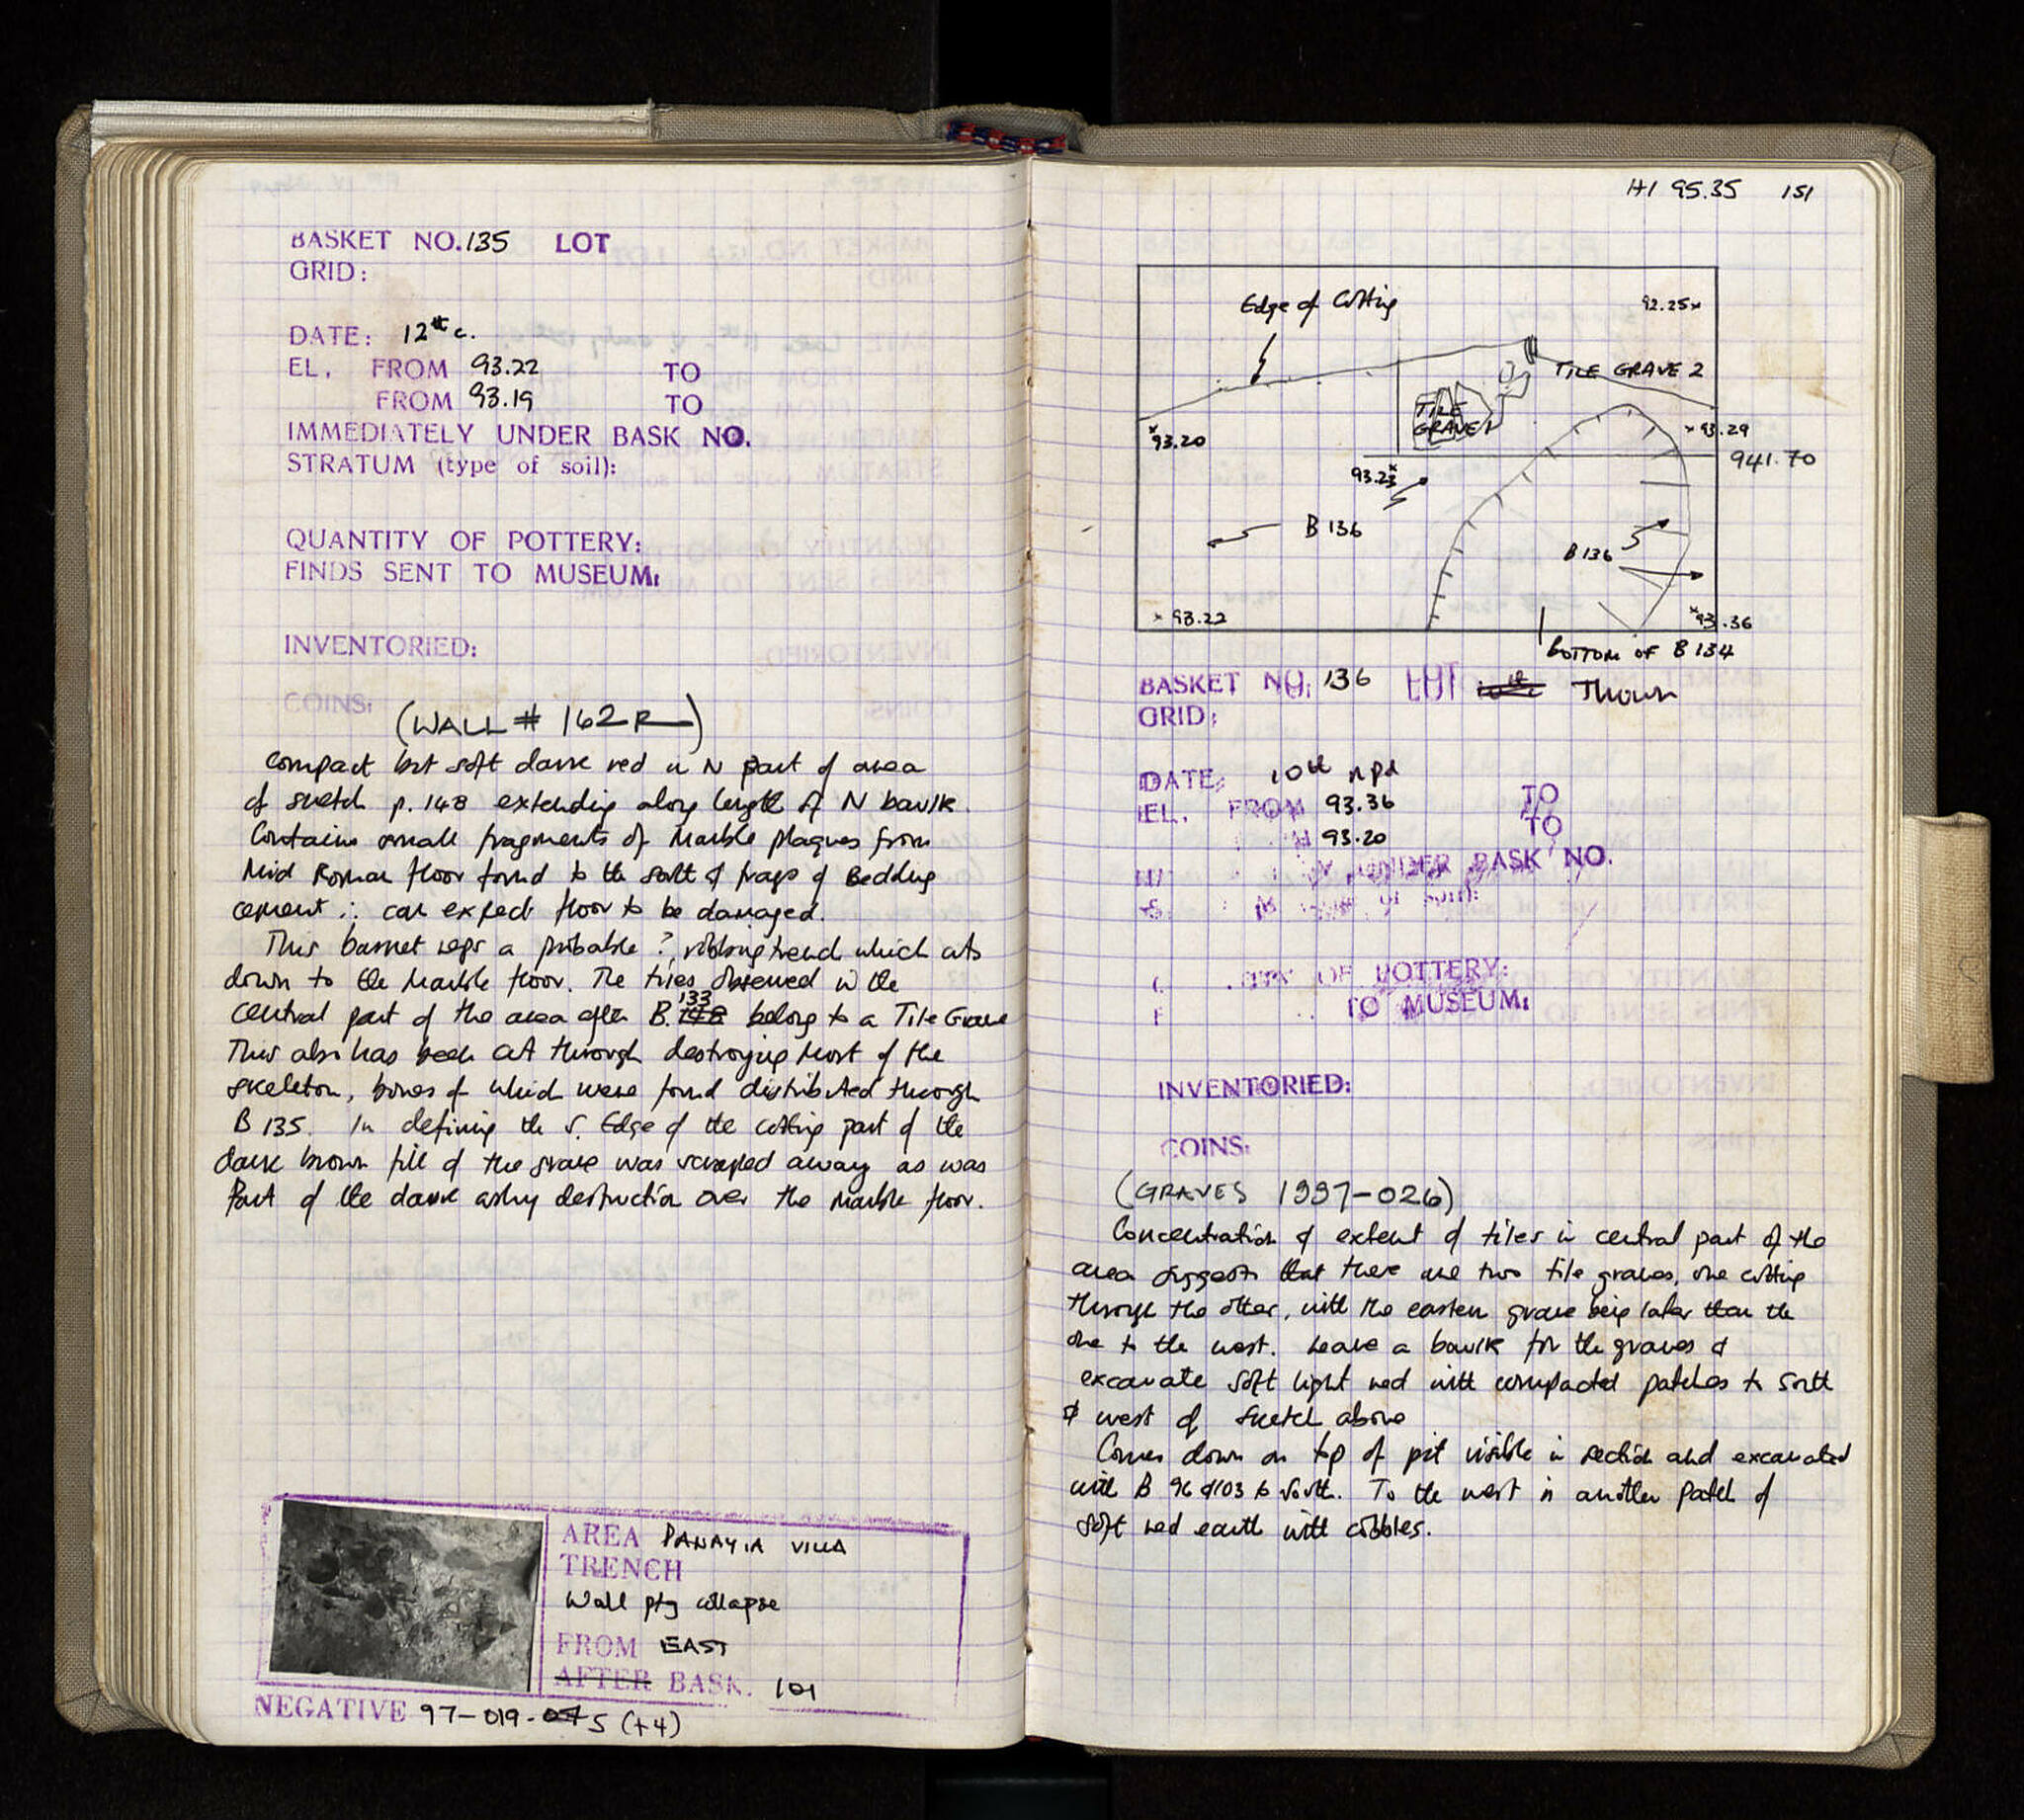 BASKET NO. 135 LOT
GRID:
DATE: 12th c.
EL. FROM 93.22 TO
FROM 93.19 TO
IMMEDIATELY UNDER BASK NO.
STRATUM (type of soil):
QUANTITY OF POTTERY:
FINDS SENT TO MUSEUM:
INVENTORIED:
COINS:
(WALL # 162R)
Compact but soft dark red in N part of area
of sketch p. 148 extending along length of N baulk.
Contains small fragments of Marble plaques from
Mid Roman floor found to the south & frags of Bedding
cement ∴ can expect floor to be damaged.
This basket reps a probable ? robbing trench which cuts
down to the Marble floor. The tiles observed in the
central part of the area after B. 133 belong to a Tile Grave
This also has been cut through destroying most of the
skeleton, bones of which were found distributed through
B 135. In defining the S. Edge of the cutting part of the
dark brown fill of the grave was scraped away as was
Part of the dark ashy destruction over the Marble floor.
AREA PANAYIA VILLA
TRENCH
Wall ptg collapse
FROM EAST
AFTER BASK. 101
NEGATIVE 97-019-5 (+4)
HI 95.35 151
Edge of Cutting
92.25x
TILE GRAVE 2
TILE
GRAVE 1
x 93.20
x 93.29
941.70
93.23 x
B 136
B 136
x 93.22
x 93.36
Bottom of B 134
BASKET NO: 136 LOT Thrown
GRID:
DATE: 10th npd
EL. FROM 93.36 TO
93.20 TO
UNDER BASK NO.
of soil:
OF POTTERY:
TO MUSEUM:
INVENTORIED:
COINS:
(GRAVES 1997-026)
Concentration & extent of tiles in central part of the
area suggests that there are two tile graves, one cutting
through the other, with the eastern grave being later than the
one to the west. Leave a baulk for the graves &
excavate soft light red with compacted patches to south
& west of sketch above
Comes down on top of pit visible in section and excavated
with B 96 & 103 to South. To the west is another patch of
soft red earth with cobbles.